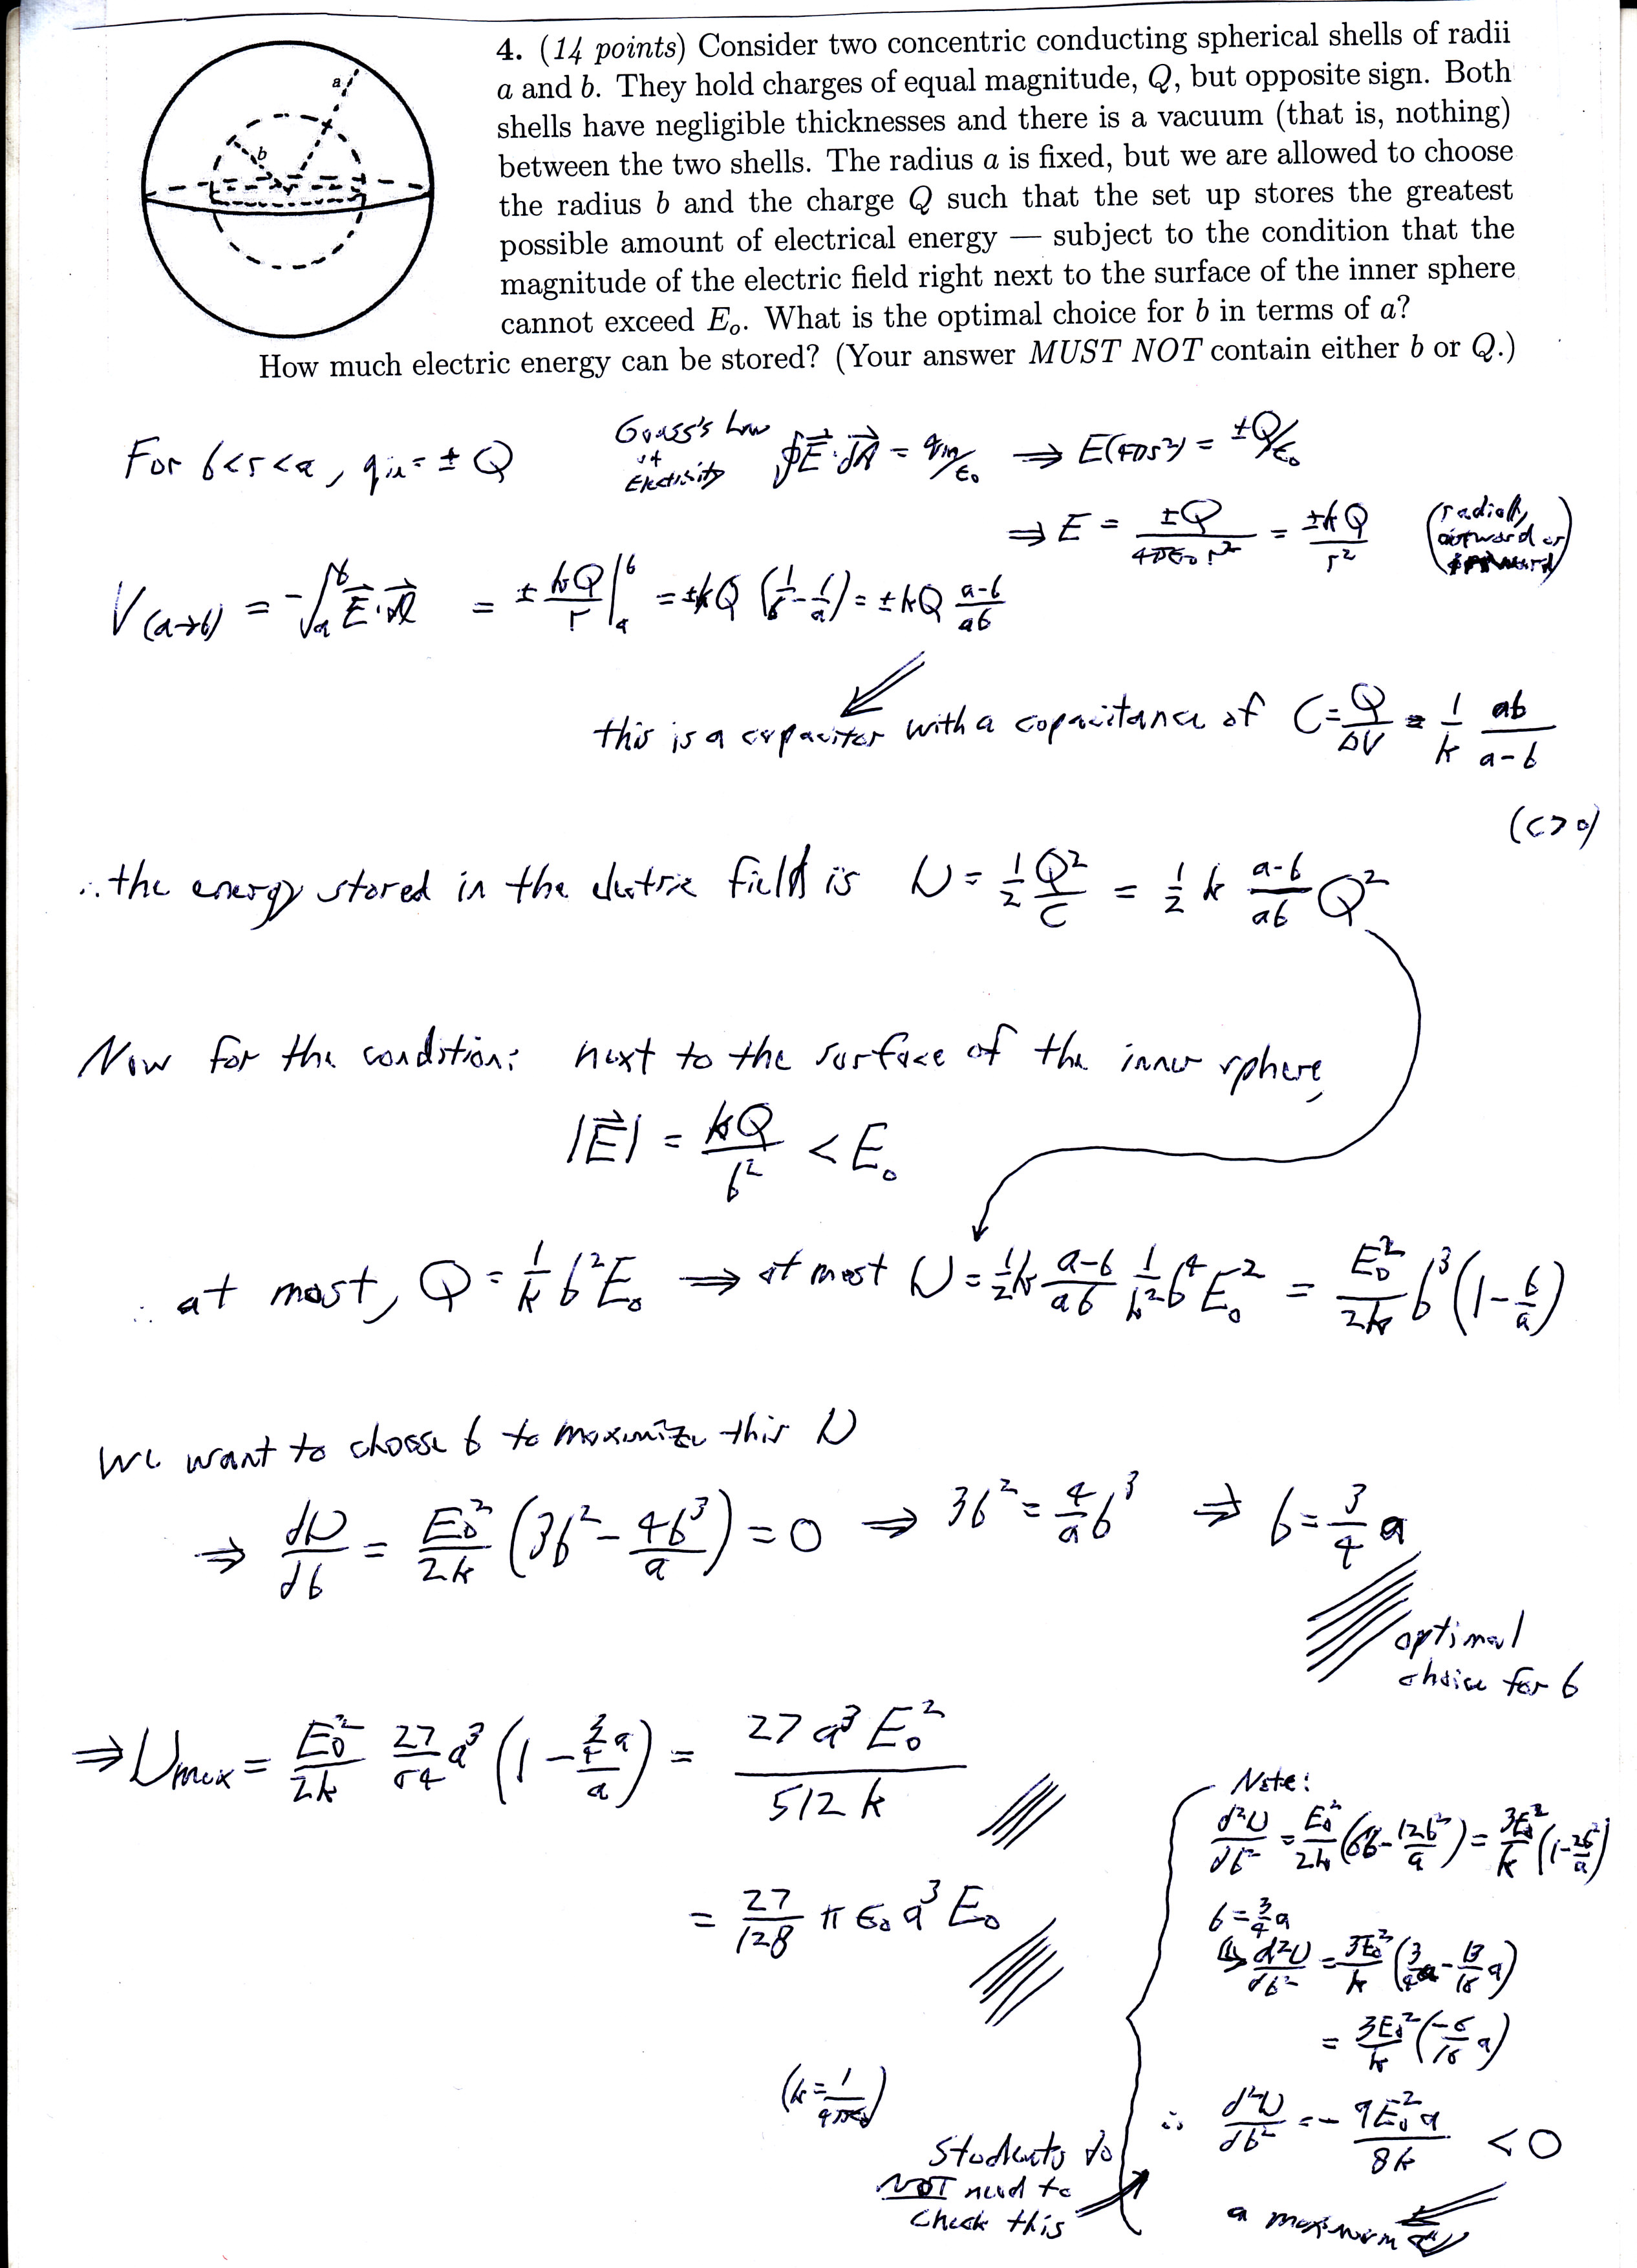 a
b
4. (14 points) Consider two concentric conducting spherical shells of radii
a and b. They hold charges of equal magnitude, Q, but opposite sign. Both
shells have negligible thicknesses and there is a vacuum (that is, nothing)
between the two shells. The radius a is fixed, but we are allowed to choose
the radius b and the charge Q such that the set up stores the greatest
possible amount of electrical energy — subject to the condition that the
magnitude of the electric field right next to the surface of the inner sphere
cannot exceed E₀. What is the optimal choice for b in terms of a?
How much electric energy can be stored? (Your answer MUST NOT contain either b or Q.)
For b<r<a, q_in = ± Q
Gauss's Law
of
Electricity
∮E⃗·dA⃗ = q_in/ε₀ ⇒ E(4πr²) = ±Q/ε₀
⇒ E = ±Q/(4πε₀ r²) = ±kQ/r² (radially outward or inward)
V(a→b) = -∫_a^b E⃗·dl⃗ = ± kQ/r |_a^b = ±kQ (1/b - 1/a) = ±kQ (a-b)/(ab)
this is a capacitor with a capacitance of C = Q/ΔV = 1/k ab/(a-b)
(C>0)
∴ the energy stored in the electric field is U = 1/2 Q²/C = 1/2 k (a-b)/(ab) Q²
Now for the condition: next to the surface of the inner sphere,
|E⃗| = kQ/b² < E₀
∴ at most, Q = 1/k b²E₀ ⇒ at most U = 1/2 k (a-b)/(ab) 1/k² b⁴ E₀² = E₀²/(2k) b³ (1 - b/a)
We want to choose b to maximize this U
⇒ dU/db = E₀²/(2k) (3b² - 4b³/a) = 0 ⇒ 3b² = 4/a b³ ⇒ b = 3/4 a
optimal
choice for b
⇒ Umax = E₀²/(2k) 27/64 a³ (1 - (3/4 a)/a) = 27 a³ E₀²/(512 k)
= 27/128 π ε₀ a³ E₀
(k = 1/(4πε₀))
Note:
d²U/db² = E₀²/(2k) (6b - 12b²/a) = 3E₀²/k (1 - 2b²/a)
b = 3/4 a
⇒ d²U/db² = 3E₀²/k (3/4 a - 18/16 a)
= 3E₀²/k (-6/16 a)
∴ d²U/db² = - 9E₀²a/(8k) < 0
a maximum U
Students do
NOT need to
check this